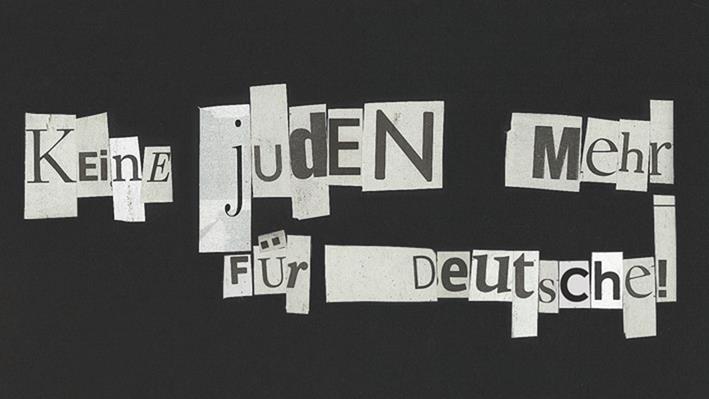 KEinE judEN MEhr
FÜr DeutschE!